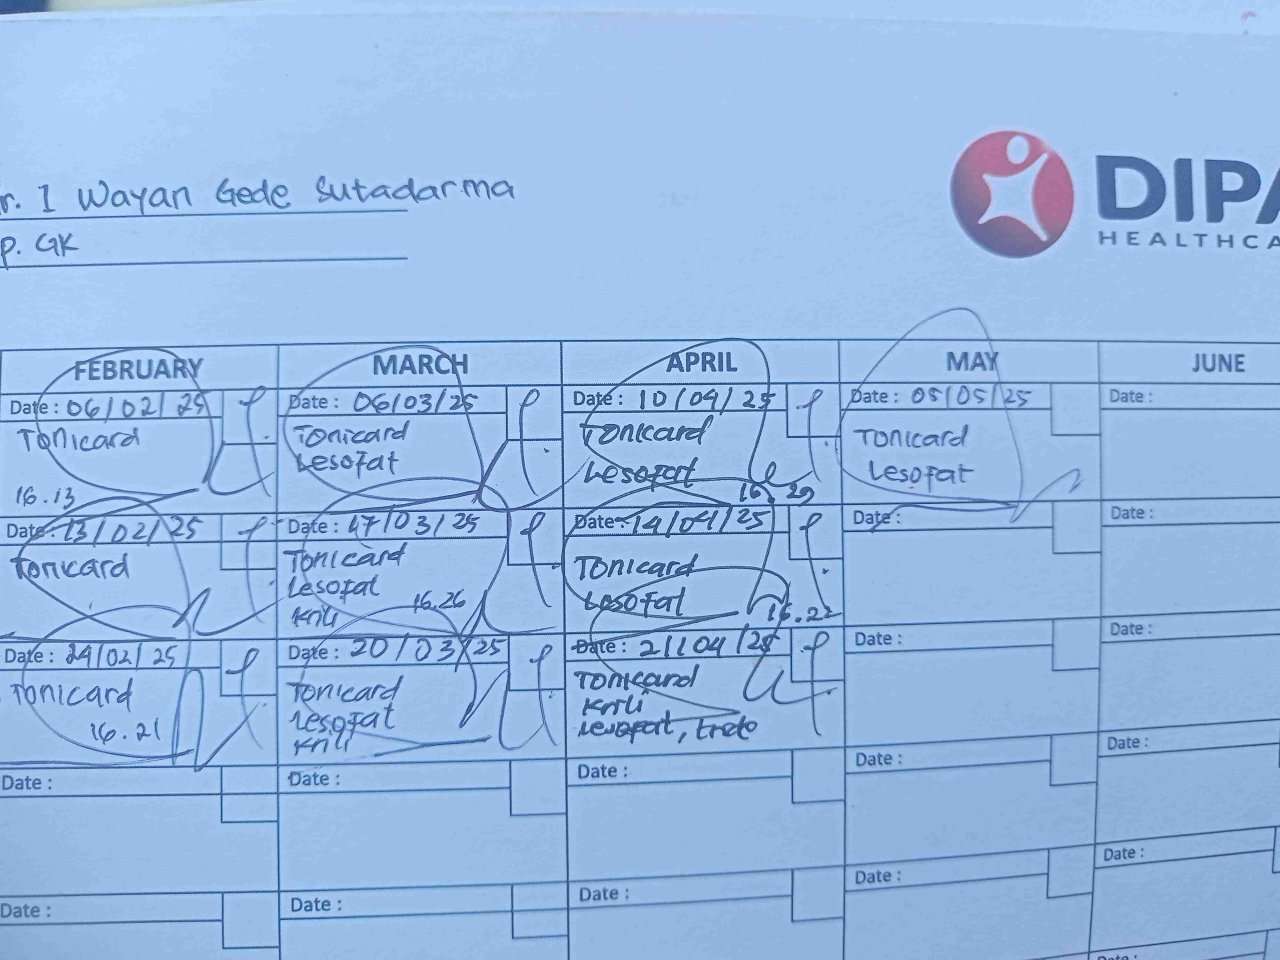 r. I Wayan Gede Sutadarma
p. GK
DIPA
HEALTHCA
FEBRUARY
Date : 06/02/25
Tonicard
16.13
Date : 13/02/25
Tonicard
Date : 24/02/25
Tonicard
16.21
Date :
Date :
MARCH
Date : 06/03/25
Tonicard
Lesofat
Date : 17/03/25
Tonicard
Lesofat
Krili
16.26
Date : 20/03/25
Tonicard
Lesofat
Krili
Date :
Date :
APRIL
Date : 10/04/25
Tonicard
Lesofat
16.29
Date : 14/04/25
Tonicard
Lesofat
16.22
Date : 21/04/25
Tonicard
Krili
Lesofat, treto
Date :
Date :
MAY
Date : 05/05/25
Tonicard
Lesofat
Date :
Date :
Date :
Date :
JUNE
Date :
Date :
Date :
Date :
Date :
Date :